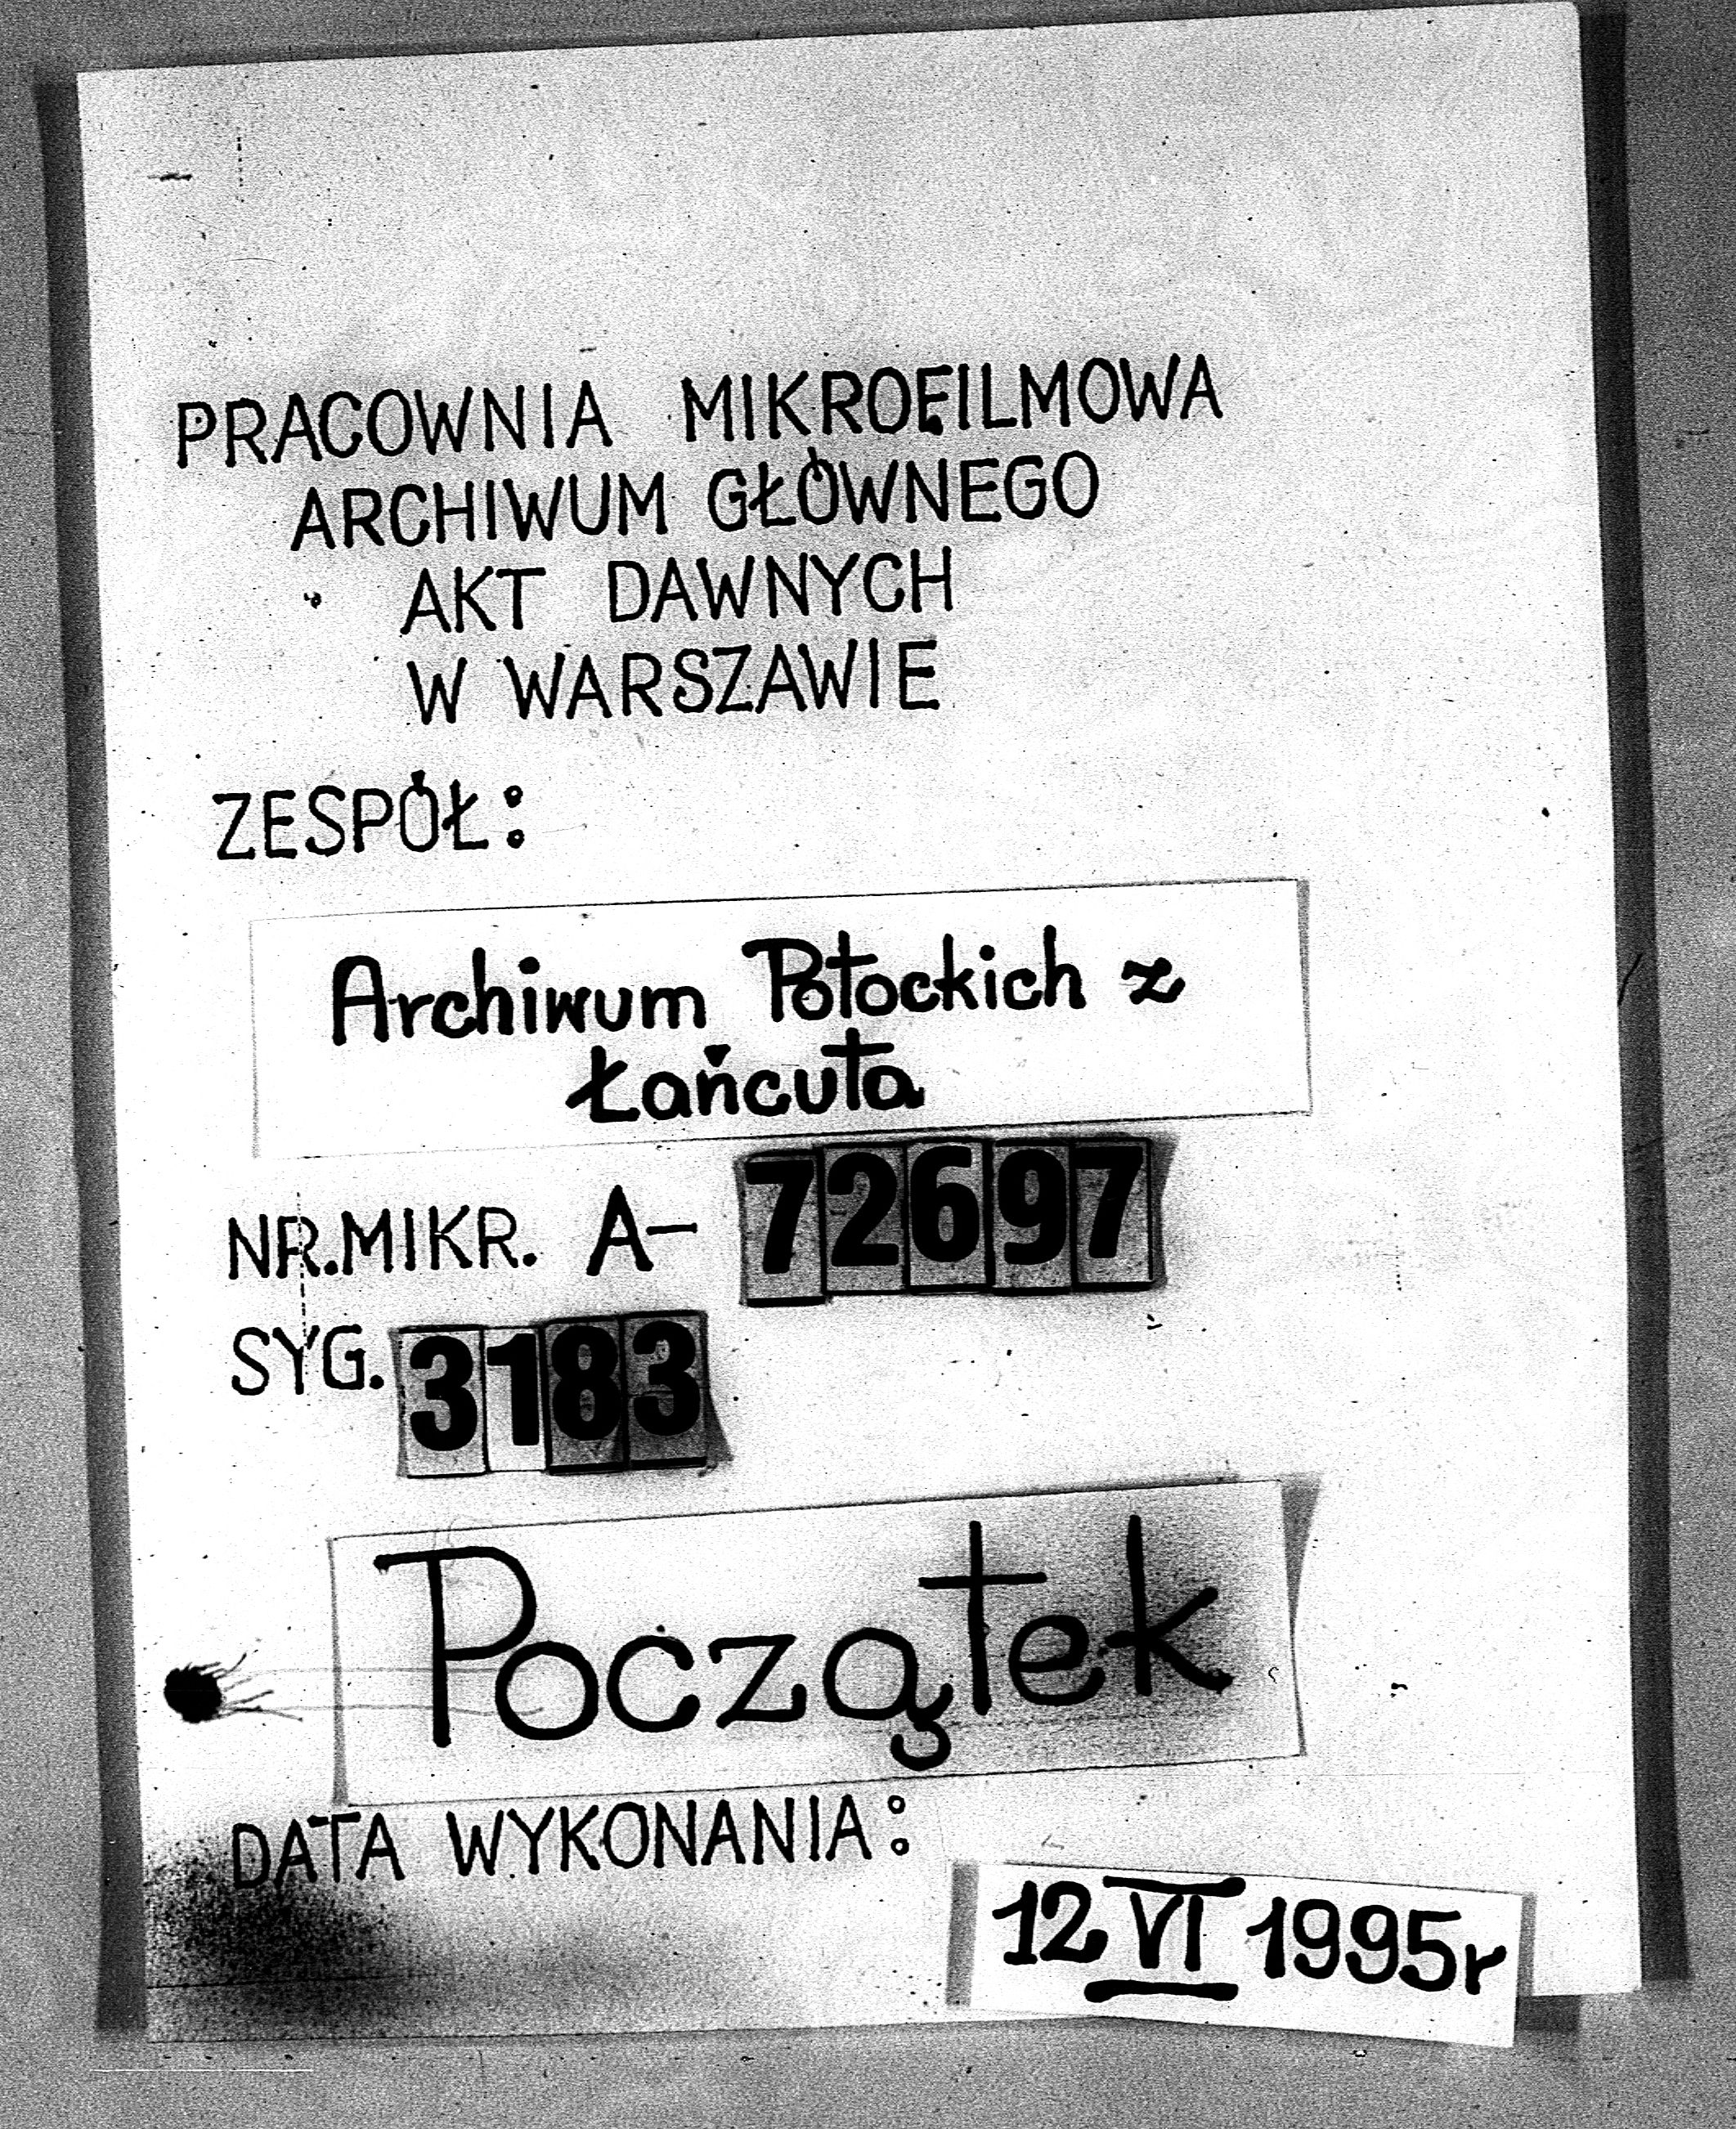 PRACOWNIA MIKROFILMOWA
ARCHIWUM GŁÓWNEGO
AKT DAWNYCH
W WARSZAWIE
ZESPÓŁ:
Archiwum Potockich z
Łańcuta
NR.MIKR. A- 72697
SYG. 3183
Początek
DATA WYKONANIA:
12 VI 1995r